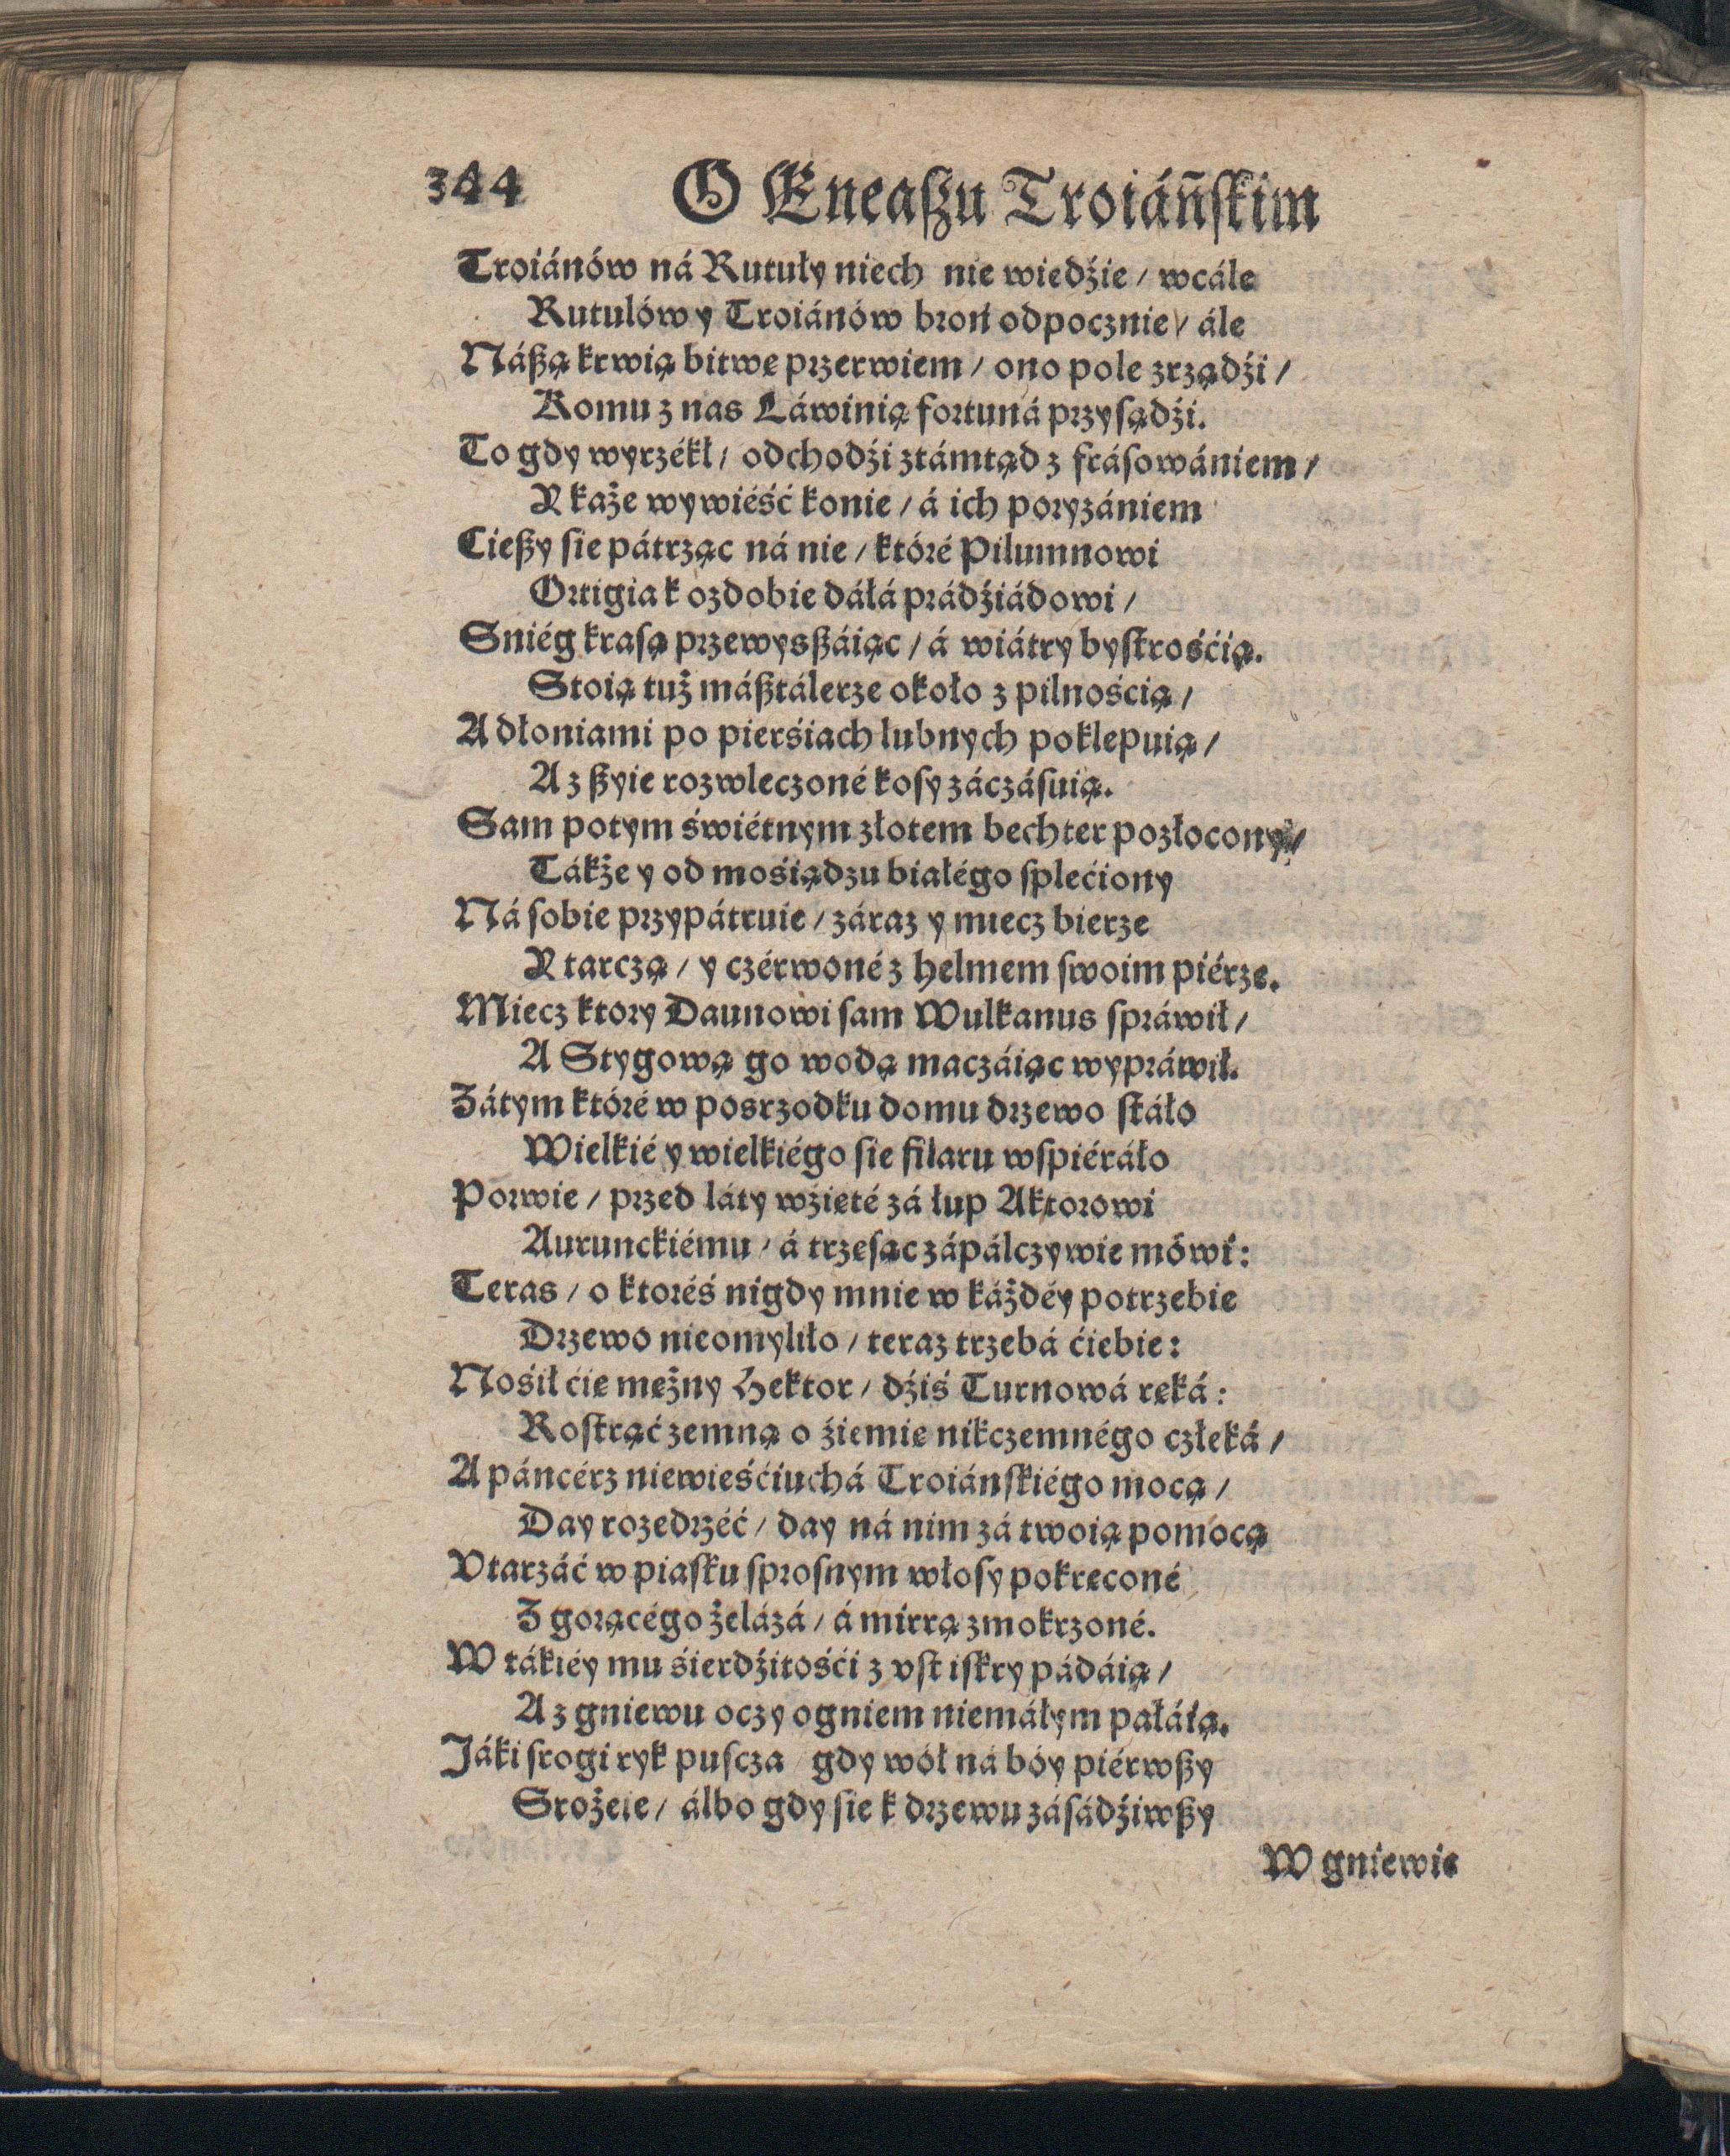 344 O Eneaſzu Troiáńſkim
Troiánów ná Rutuły niech nie wiedźie / wcále
Rutulów y Troiánów broń odpocznie / ále
Náßą krwią bitwę przerwiem / ono pole zrządźi /
Komu z nas Láwinią fortuná przyſądźi.
To gdy wyrzékł / odchodźi ztámtąd z fráſowániem /
Y każe wywiéść konie / á ich poryzániem
Cießy ſie pátrząc ná nie / któré Pilumnowi
Ortigia k ozdobie dáłá prádźiádowi /
Sniég kraſą przewysßáiąc / á wiátry byſtrośćią.
Stoią tuż máßtálerze około z pilnością /
A dłoniami po pierśiach łubnych poklepuią /
A z ßyie rozwleczoné koſy záczáſuią.
Sam potym świétnym złotem bechter pozłocony /
Tákże y od mośiądzu białégo ſplećiony
Ná ſobie przypátruie / záraz y miecz bierze
Y tarczą / y czérwoné z helmem ſwoim piérze.
Miecz ktory Daunowi ſam Wulkanus ſpráwił /
A Stygową go wodą maczáiąc wypráwił.
Zátym któré w posrzodku domu drzewo ſtáło
Wielkié y wielkiégo ſie filaru wſpiéráło
Porwie / przed láty wźięté zá łup Aktorowi
Aurunckiému / á trzęſąc zápálczywie mówi:
Teras / o ktoréś nigdy mnie w káżdéy potrzebie
Drzewo nieomyliło / teraz trzebá ćiebie:
Nośił ćię mężny Hektor / dźiś Turnowá ręká:
Roſtrąć zemną o źiemię nikczemnégo człeká /
A páncérz niewieśćiuchá Troiánſkiégo mocą /
Day rozedrzéć / day ná nim zá twoią pomocą
Vtarzáć w piaſku ſproſnym włoſy pokręconé
Z gorącégo żelázá / á mirrą zmokrzoné.
W tákiéy mu śierdźitośći z vſt iſkry pádáią /
A z gniewu oczy ogniem niemáłym pałáią.
Jáki ſrogi ryk puſcza / gdy wół ná bóy piérwßy
Srożeie / álbo gdy ſie k drzewu záſádźiwßy
W gniewie